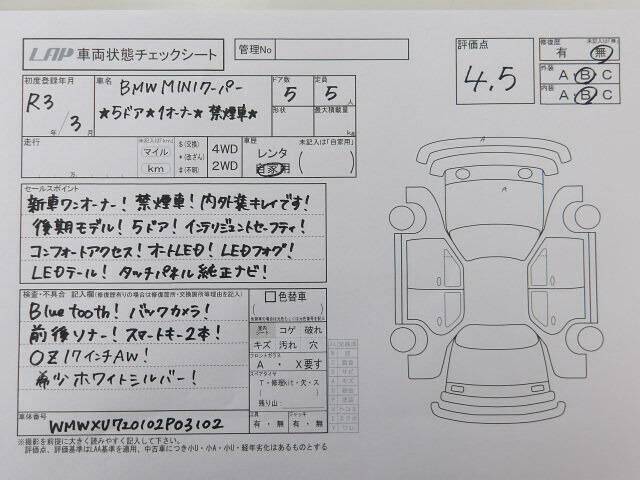 LAP 車両状態チェックシート
管理No
評価点
4.5
修復歴 未記入は「無」
有 無
外装 A・B・C
内装 A・B・C
初度登録年月
R3/3月
車名
BMW MINIクーパー
★5ドア★1オーナー★ 禁煙車★
ドア数 5
定員 5人
形状
最大積載量
kg
走行 未記入は「km」
マイル
km
$(交換)
*(改ざん)
#(不明)
4WD
2WD
車歴 未記入は「自家用」
レンタ
自家用
( )
セールスポイント
新車ワンオーナー! 禁煙車! 内外装キレイです!
後期モデル! 5ドア! インテリジェントセーフティ!
コンフォートアクセス! オートLED! LEDフォグ!
LEDテール! タッチパネル純正ナビ!
検査・不具合 記入欄(修復歴有りの場合は修復箇所・交換箇所等理由を記入)
Bluetooth! バックカメラ!
前後ソナー! スマートキー2本!
OZ17インチAW!
希少ホワイトシルバー!
色替車
室内シート コゲ 破れ
キズ 汚れ 穴
フロントガラス
A ・ X要す
スペアタイヤ
T・修理kit・欠・ス
残り山:
工具 有・無
ジャッキ 有・無
車体番号
WMWXU720102P03102
※撮影を前提に大きく読みやすく記入して下さい。
評価点、評価基準はLAA基準を適用、中古車につき小U・小A・小U・経年劣化はあるものとする
A
A